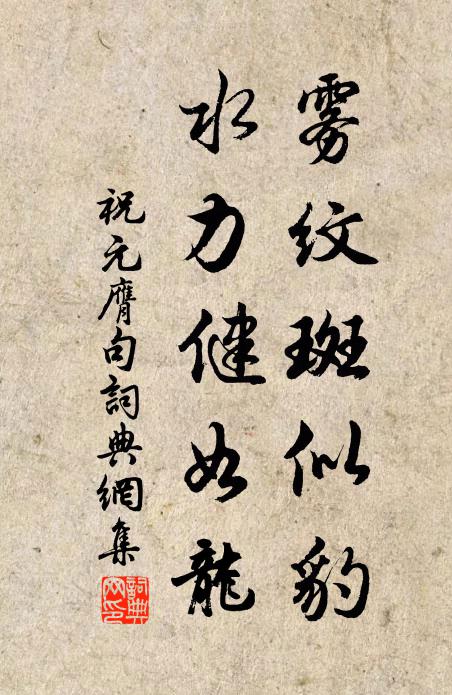 雾纹斑似豹
水力健如龍
祝元膺句詞典網集
詞典网印